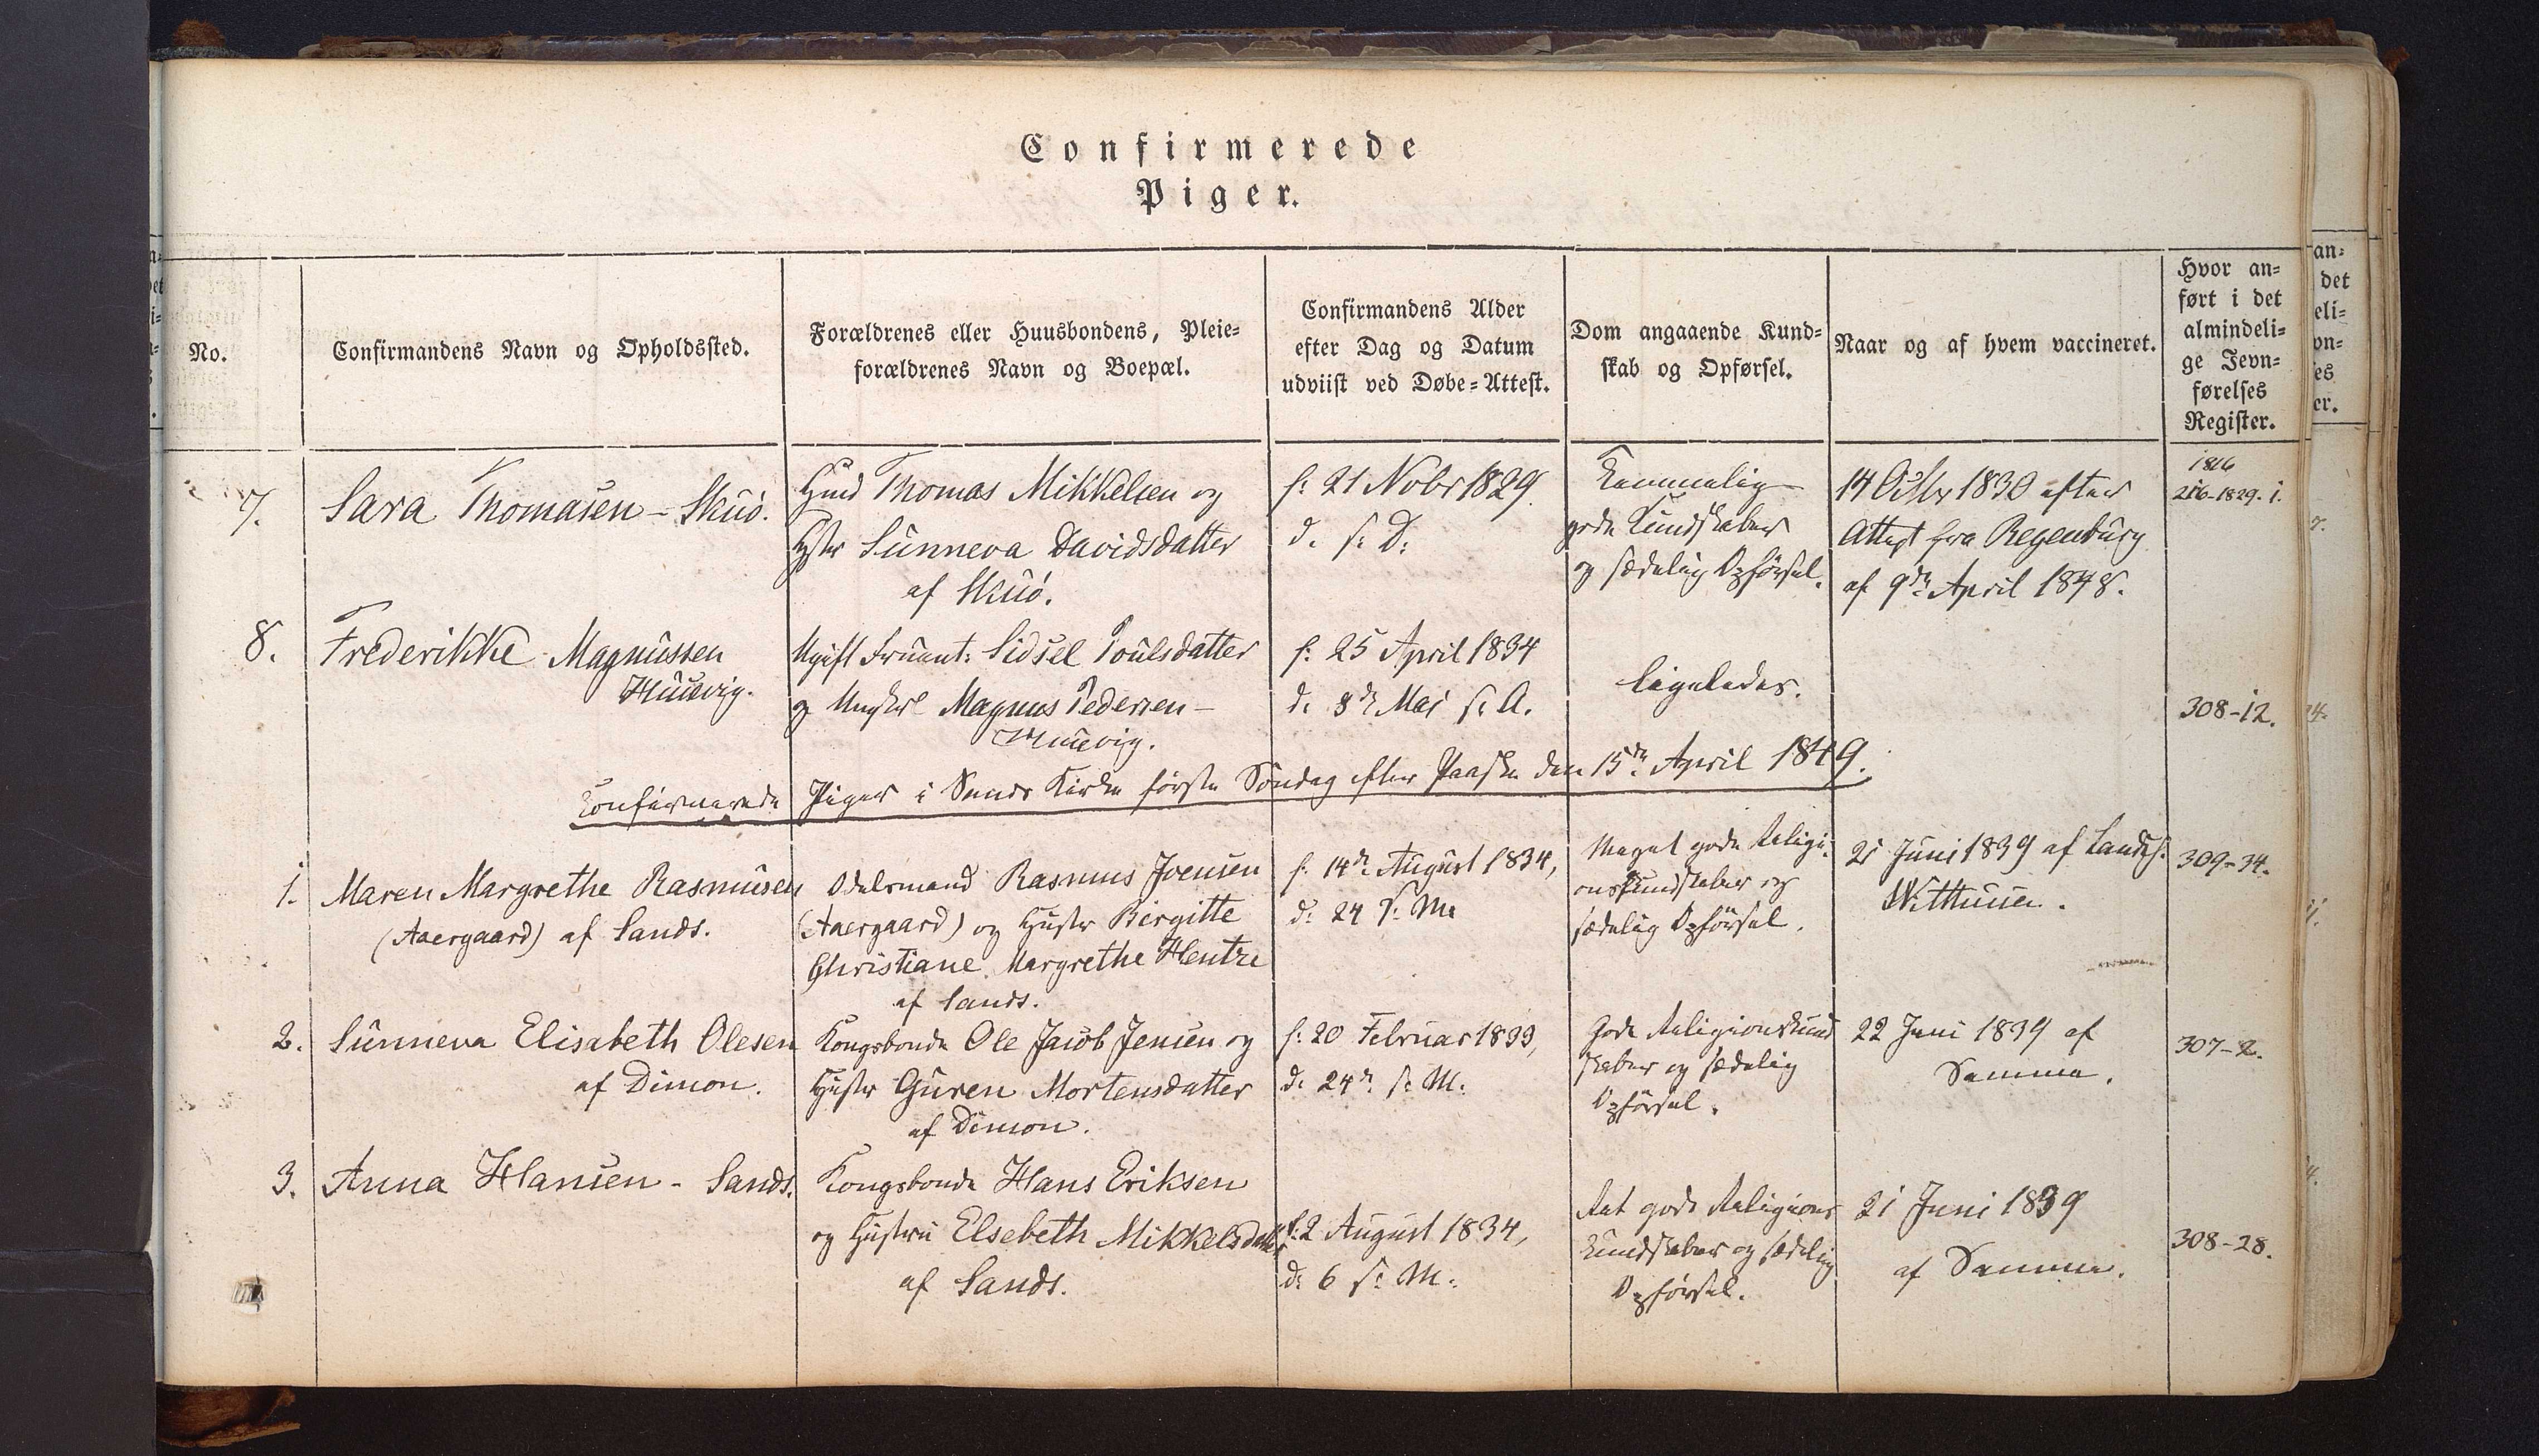 Confirmerede
Piger.
No.
Confirmandens Navn og Opholdssted.
Forældrenes eller Huusbondens, Pleie=
forældrenes Navn og Boepæl.
Confirmandens Alder
efter Dag og Datum
udviist ved Døbe=Attest.
Dom angaaende Kund=
skab og Opførsel.
Naar og af hvem vaccineret.
Hvor an=
ført i det
almindeli=
ge Jevn=
førelses
Register.
7.
Sara Thomasen - Skuö.
Thomas Mikkelsen og
Sunneva Davidsdatter
af Skuö.
f: 21 Nobr 1829.
d. s: D:
Temmelig
gode Kundskaber
og sædelig Opførsel.
14 Octbr 1830 efter
Attest fra Regenburg
af 9de April 1848.
1816
216-1829. i.
8.
Frederikke Magnussen
Huusvig.
Ugift Fruent: Sidsel Poulsdatter
og Ungkrl Magnus Pedersen -
Huusvig.
f: 25 April 1834
d. 8de Mai s. A.
ligeledes.
308-12.
Confirmerede Piger i Sands Kirke første Søndag efter Paaske den 15de April 1849.
1.
Maren Margrethe Rasmusen
(Aaergaard) af Sands.
Odelsmand Rasmus Joensen
(Aaergaard) og Hustr Birgitte
Christiane Margrethe Hentze
af Sands.
f. 14de August 1834,
d: 24 s. M.
Meget gode Religi-
onskundskaber og
sædelig Opførsel.
21 Juni 1839 af Landch.
309-34.
2.
Sunneva Elisabeth Olesen
af Dimon.
Kongsbonde Ole Jacob Jensen og
Hustr Guren Mortensdatter
af Dimon.
f: 20 Februar 1833,
d. 24de s. M.
Gode Religionskund
skaber og sædelig
Opførsel.
22 Juni 1839 af
Samme.
307-2.
3.
Anna Hansen - Sands.
Kongsbonde Hans Eriksen
og Hustru Elsebeth Mikkelsdatter
af Sands.
f. 2 August 1834,
d: 6 s: M.
Ret gode Religions
kundskaber og sædelig
Opførsel.
21 Juni 1839
af Samme.
308-28.